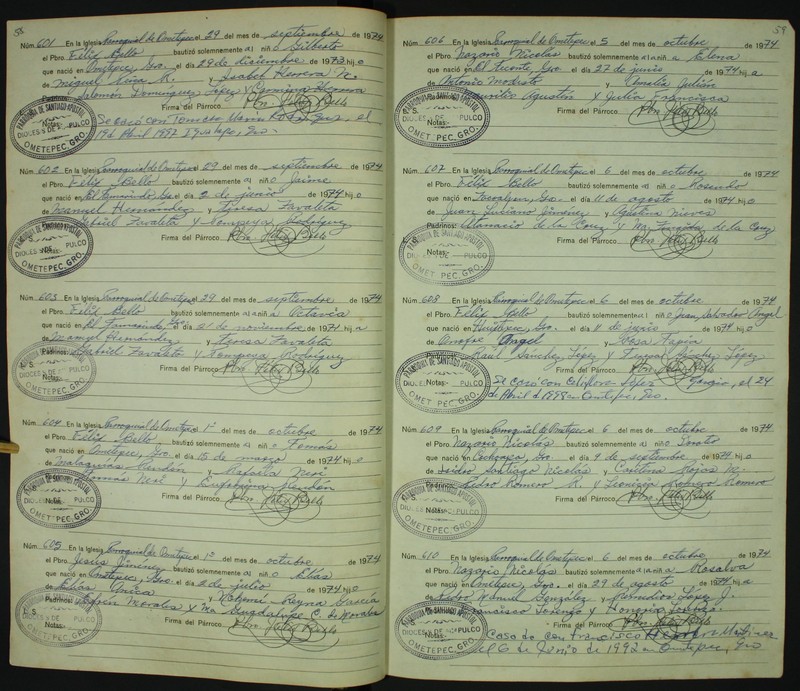 58
Núm. 601 En la Iglesia Parroquial de Ometepec el 29 del mes de septiembre de 1974
el Pbro. Félix Bello bautizó solemnemente al niño Gilberto
que nació en Ometepec, Gro. el día 29 de diciembre de 1973 hijo
de Miguel Peña R. y Isabel Herrera N.
Padrinos: Salomón Domínguez López y Herrera
Firma del Párroco. Pbro. Félix Bello
PARROQUIA DE SANTIAGO APOSTOL
DIOCESIS DE ACAPULCO
OMETEPEC, GRO.
Notas: Se casó con María el
19 de Abril 1997 Gro.
Núm. 602 En la Iglesia Parroquial de Ometepec el 29 del mes de septiembre de 1974
el Pbro. Félix Bello bautizó solemnemente al niño Jaime
que nació en El Tamarindo, Gro. el día 2 de junio de 1974 hijo
de Manuel Hernández y Teresa Zavaleta
Gabriel Zavaleta y Pompeya Rodríguez
Firma del Párroco. Pbro. Félix Bello
PARROQUIA DE SANTIAGO APOSTOL
DIOCESIS DE ACAPULCO
OMETEPEC, GRO.
Núm. 603 En la Iglesia Parroquial de Ometepec el 29 del mes de septiembre de 1974
el Pbro. Félix Bello bautizó solemnemente a la niña Octavia
que nació en El Tamarindo, Gro. el día de noviembre de 1971 hija
de Manuel Hernández y Teresa Zavaleta
Padrinos: Gabriel Zavaleta y Pompeya Rodríguez
Firma del Párroco. Pbro. Félix Bello
L. S.
Notas:
OMETEPEC, GRO.
Núm. 604 En la Iglesia Parroquial de Ometepec el 1º del mes de octubre de 1974
el Pbro. Félix Bello bautizó solemnemente al niño Tomás
que nació en Ometepec, Gro. el día 15 de marzo de 1974 hijo
de Malaquías Rendón y Rafaela Nori
Tomás Nori y Eufrosina Rendón
Firma del Párroco. Pbro. Félix Bello
PARROQUIA DE SANTIAGO APOSTOL
Notas:
OMETEPEC, GRO.
Núm. 605 En la Iglesia Parroquial de Ometepec el 1º del mes de octubre de 1974
el Pbro. Jesús Jiménez bautizó solemnemente al niño Elías
que nació en Ometepec, Gro. el día 2 de julio de 1974 hijo
de Elías y Noemí Reyna García
Efrén Morales y Ma. Guadalupe C. de Morales
Firma del Párroco. Pbro. Félix Bello
L. S.
Notas:
OMETEPEC, GRO.
59
Núm. 606 En la Iglesia Parroquial de Ometepec el 5 del mes de octubre de 1974
el Pbro. Nazario Nicolás bautizó solemnemente a la niña Elena
que nació en El Puente, Gro. el día 27 de junio de 1974 hija
de Antonio Modesto y Amalia Julián
Maurilio Agustín y Julia Francisca
Firma del Párroco. Pbro. Félix Bello
PARROQUIA DE SANTIAGO APOSTOL
DIOCESIS DE ACAPULCO
Notas:
OMETEPEC, GRO.
Núm. 607 En la Iglesia Parroquial de Ometepec el 6 del mes de octubre de 1974
el Pbro. Félix Bello bautizó solemnemente al niño Rosendo
que nació en Gro. el día 11 de agosto de 1974 hijo
de Juan Juliano Jiménez y Agustina Nieves
Padrinos: Atanacio de la Cruz y Ma. de la Cruz
Firma del Párroco. Pbro. Félix Bello
PARROQUIA DE SANTIAGO APOSTOL
Notas:
OMETEPEC, GRO.
Núm. 608 En la Iglesia Parroquial de Ometepec el 6 del mes de octubre de 1974
el Pbro. Félix Bello bautizó solemnemente al niño Juan Salvador Angel
que nació en Huixtepec, Gro. el día 11 de junio de 1974 hijo
de Onofre Angel y Rosa Tapia
Raúl Sánchez López y Sánchez López
Firma del Párroco. Pbro. Félix Bello
PARROQUIA DE SANTIAGO APOSTOL
OMETEPEC, GRO.
Notas: Se casó con López García, el 24
de Abril d 1998 en Ometepec, Gro.
Núm. 609 En la Iglesia Parroquial de Ometepec el 6 del mes de octubre de 1974
el Pbro. Nazario Nicolás bautizó solemnemente al niño Donato
que nació en Cochoapa, Gro. el día 9 de septiembre de 1974 hijo
de Isidro Santiago Nicolás y Cantina Rojas N.
Pedro Romero R. y Leonicia Romero
Firma del Párroco. Pbro. Félix Bello
PARROQUIA DE SANTIAGO APOSTOL
Notas:
OMETEPEC, GRO.
Núm. 610 En la Iglesia Parroquial de Ometepec el 6 del mes de octubre de 1974
el Pbro. Nazario Nicolás bautizó solemnemente a la niña Rosalva
que nació en Ometepec, Gro. el día 29 de agosto de 1974 hija
de Pedro Manuel González y Remedios López J.
Francisco Lorenzo y Honoria Lorenzo
Firma del Párroco. Pbro. Félix Bello
Notas:
OMETEPEC, GRO.
Caso do con Francisco Martínez
el 6 de Junio de 1992 en Ometepec, Gro